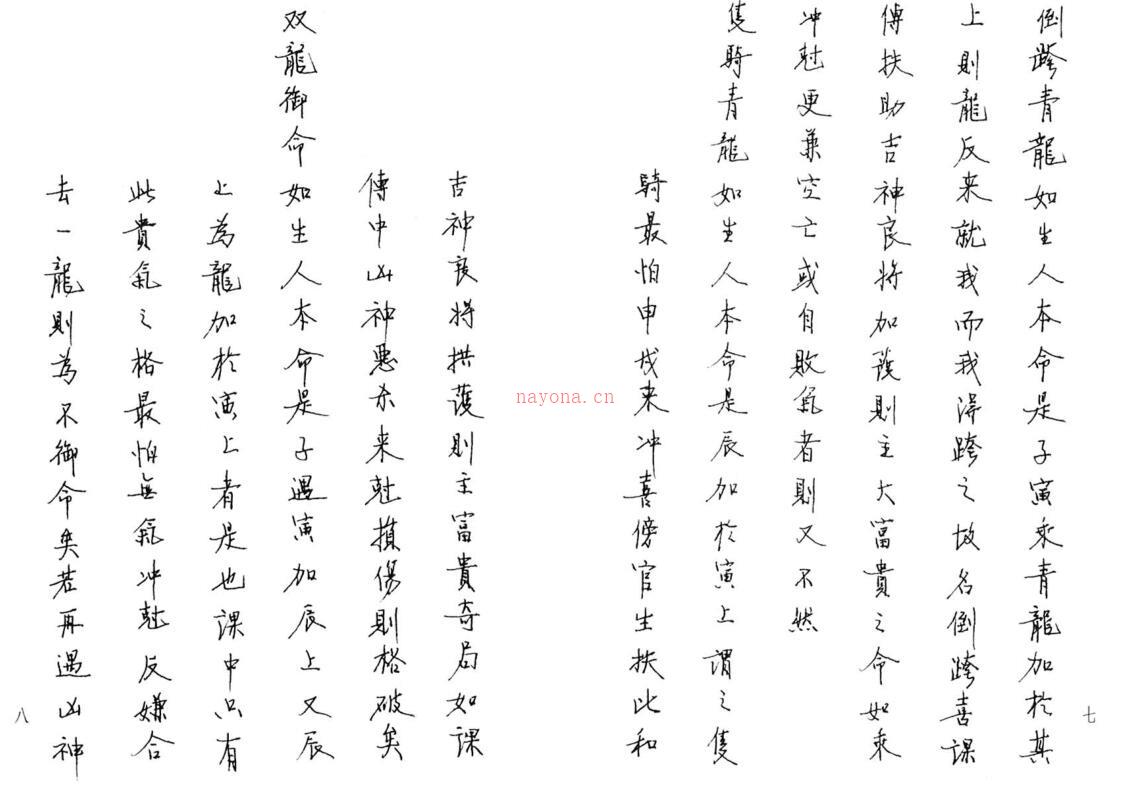 倒跨青龍如生人本命是子寅乘青龍加於其
上則龍反来就我而我淂跨之故名倒跨喜課
傳扶助吉神良将加護則主大富貴之命如乘
冲尅更兼空亡或自敗氣者則又不然
隻騎青龍如生人本命是辰加於寅上謂之隻
騎最怕申戌来冲喜傍官生扶此和
七
吉神良将拱護則主富貴奇局如課
傳中凶神惡杀来尅損傷則格破矣
双龍御命如生人本命是子遇寅加辰上又辰
上為龍加於寅上者是也課中只有
此貴氣之格最怕無氣冲尅反嫌合
去一龍則為不御命矣若再遇凶神
八
nayona.cn